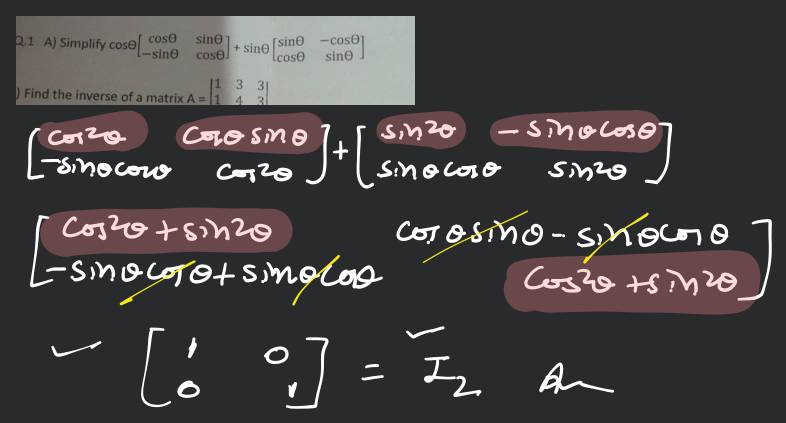 Q.1 A) Simplify cosθ[ cosθ sinθ ] + sinθ [ sinθ -cosθ ]
-sinθ cosθ cosθ sinθ
) Find the inverse of a matrix A = |1 3 3|
1 4 3
[ cos²θ cosθ sinθ ] + [ sin²θ - sinθ cosθ ]
-sinθcosθ cos²θ sinθ cosθ sin²θ
[ cos²θ + sin²θ cosθ sinθ - sinθ cosθ ]
-sinθ cosθ + sinθ cosθ cos²θ + sin²θ
✓ [ 1 0 ] = I₂ Ans
0 1